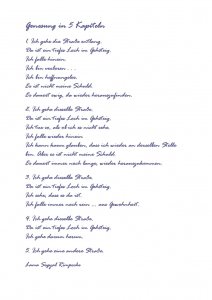 Genesung in 5 Kapiteln
1. Ich gehe die Straße entlang.
Da ist ein tiefes Loch im Gehsteig.
Ich falle hinein.
Ich bin verloren ...
Ich bin hoffnungslos.
Es ist nicht meine Schuld.
Es dauert ewig, da wieder herauszufinden.
2. Ich gehe dieselbe Straße.
Da ist ein tiefes Loch im Gehsteig.
Ich tue so, als ob ich es nicht sehe.
Ich falle wieder hinein.
Ich kann kaum glauben, dass ich wieder an derselben Stelle
bin. Aber es ist nicht meine Schuld.
Es dauert immer noch lange, wieder herauszukommen.
3. Ich gehe dieselbe Straße.
Da ist ein tiefes Loch im Gehsteig.
Ich sehe, dass es da ist.
Ich falle immer noch rein ... aus Gewohnheit.
4. Ich gehe dieselbe Straße.
Da ist ein tiefes Loch im Gehsteig.
Ich gehe darum herum.
5. Ich gehe eine andere Straße.
Lama Sogyal Rinpoche